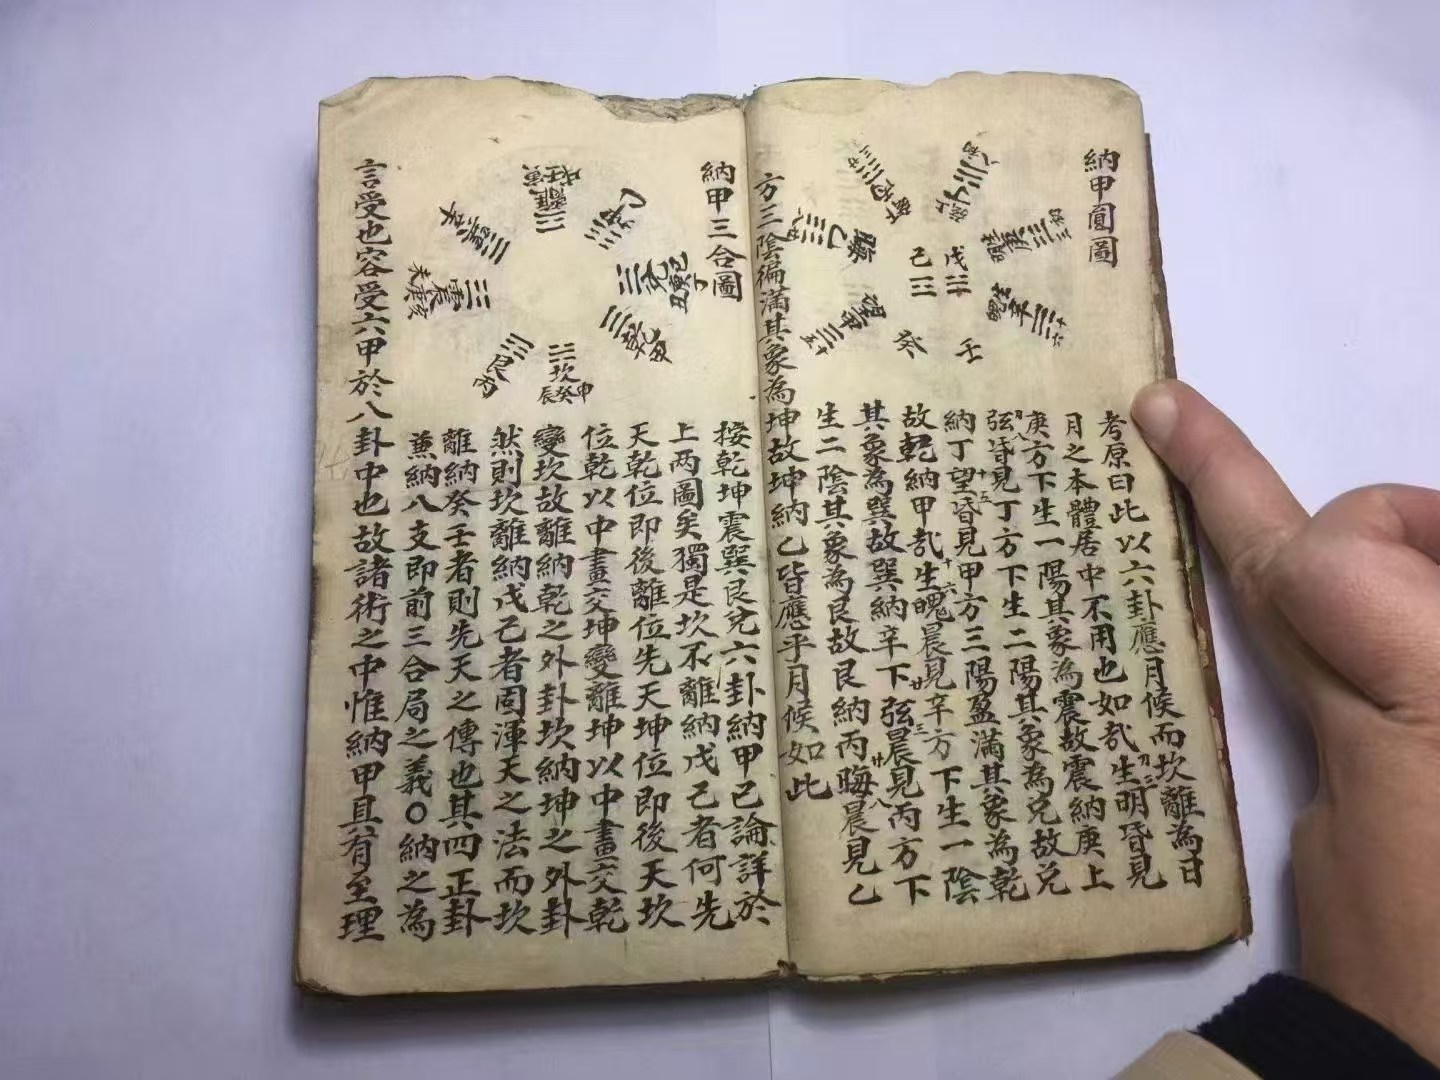 納甲圓圖
戊
己
壬
癸
考原曰此以六卦應月候而坎離為日
月之本體居中不用也如哉生明昏見
庚方下生一陽其象為震故震納庚上
弦昏見丁方下生二陽其象為兌故兌
納丁望昏見甲方三陽盈滿其象為乾
故乾納甲哉生魄晨見辛方下生一陰
其象為巽故巽納辛下弦晨見丙方下
生二陰其象為艮故艮納丙晦晨見乙
方三陰徧滿其象為坤故坤納乙皆應乎月候如此
納甲三合圖
離
兌
乾甲
坎
申癸辰
艮丙
震
巽辛
按乾坤震巽艮兌六卦納甲已論詳於
上两圖矣獨是坎不離納戊己者何先
天乾位即後離位先天坤位即後天坎
位乾以中畫交坤變離坤以中畫交乾
變坎故離納乾之外卦坎納坤之外卦
然則坎離納戊己者周渾天之法而坎
離納癸壬者則先天之傳也其四正卦
兼納八支即前三合局之義〇納之為
言受也容受六甲於八卦中也故諸術之中惟納甲具有至理